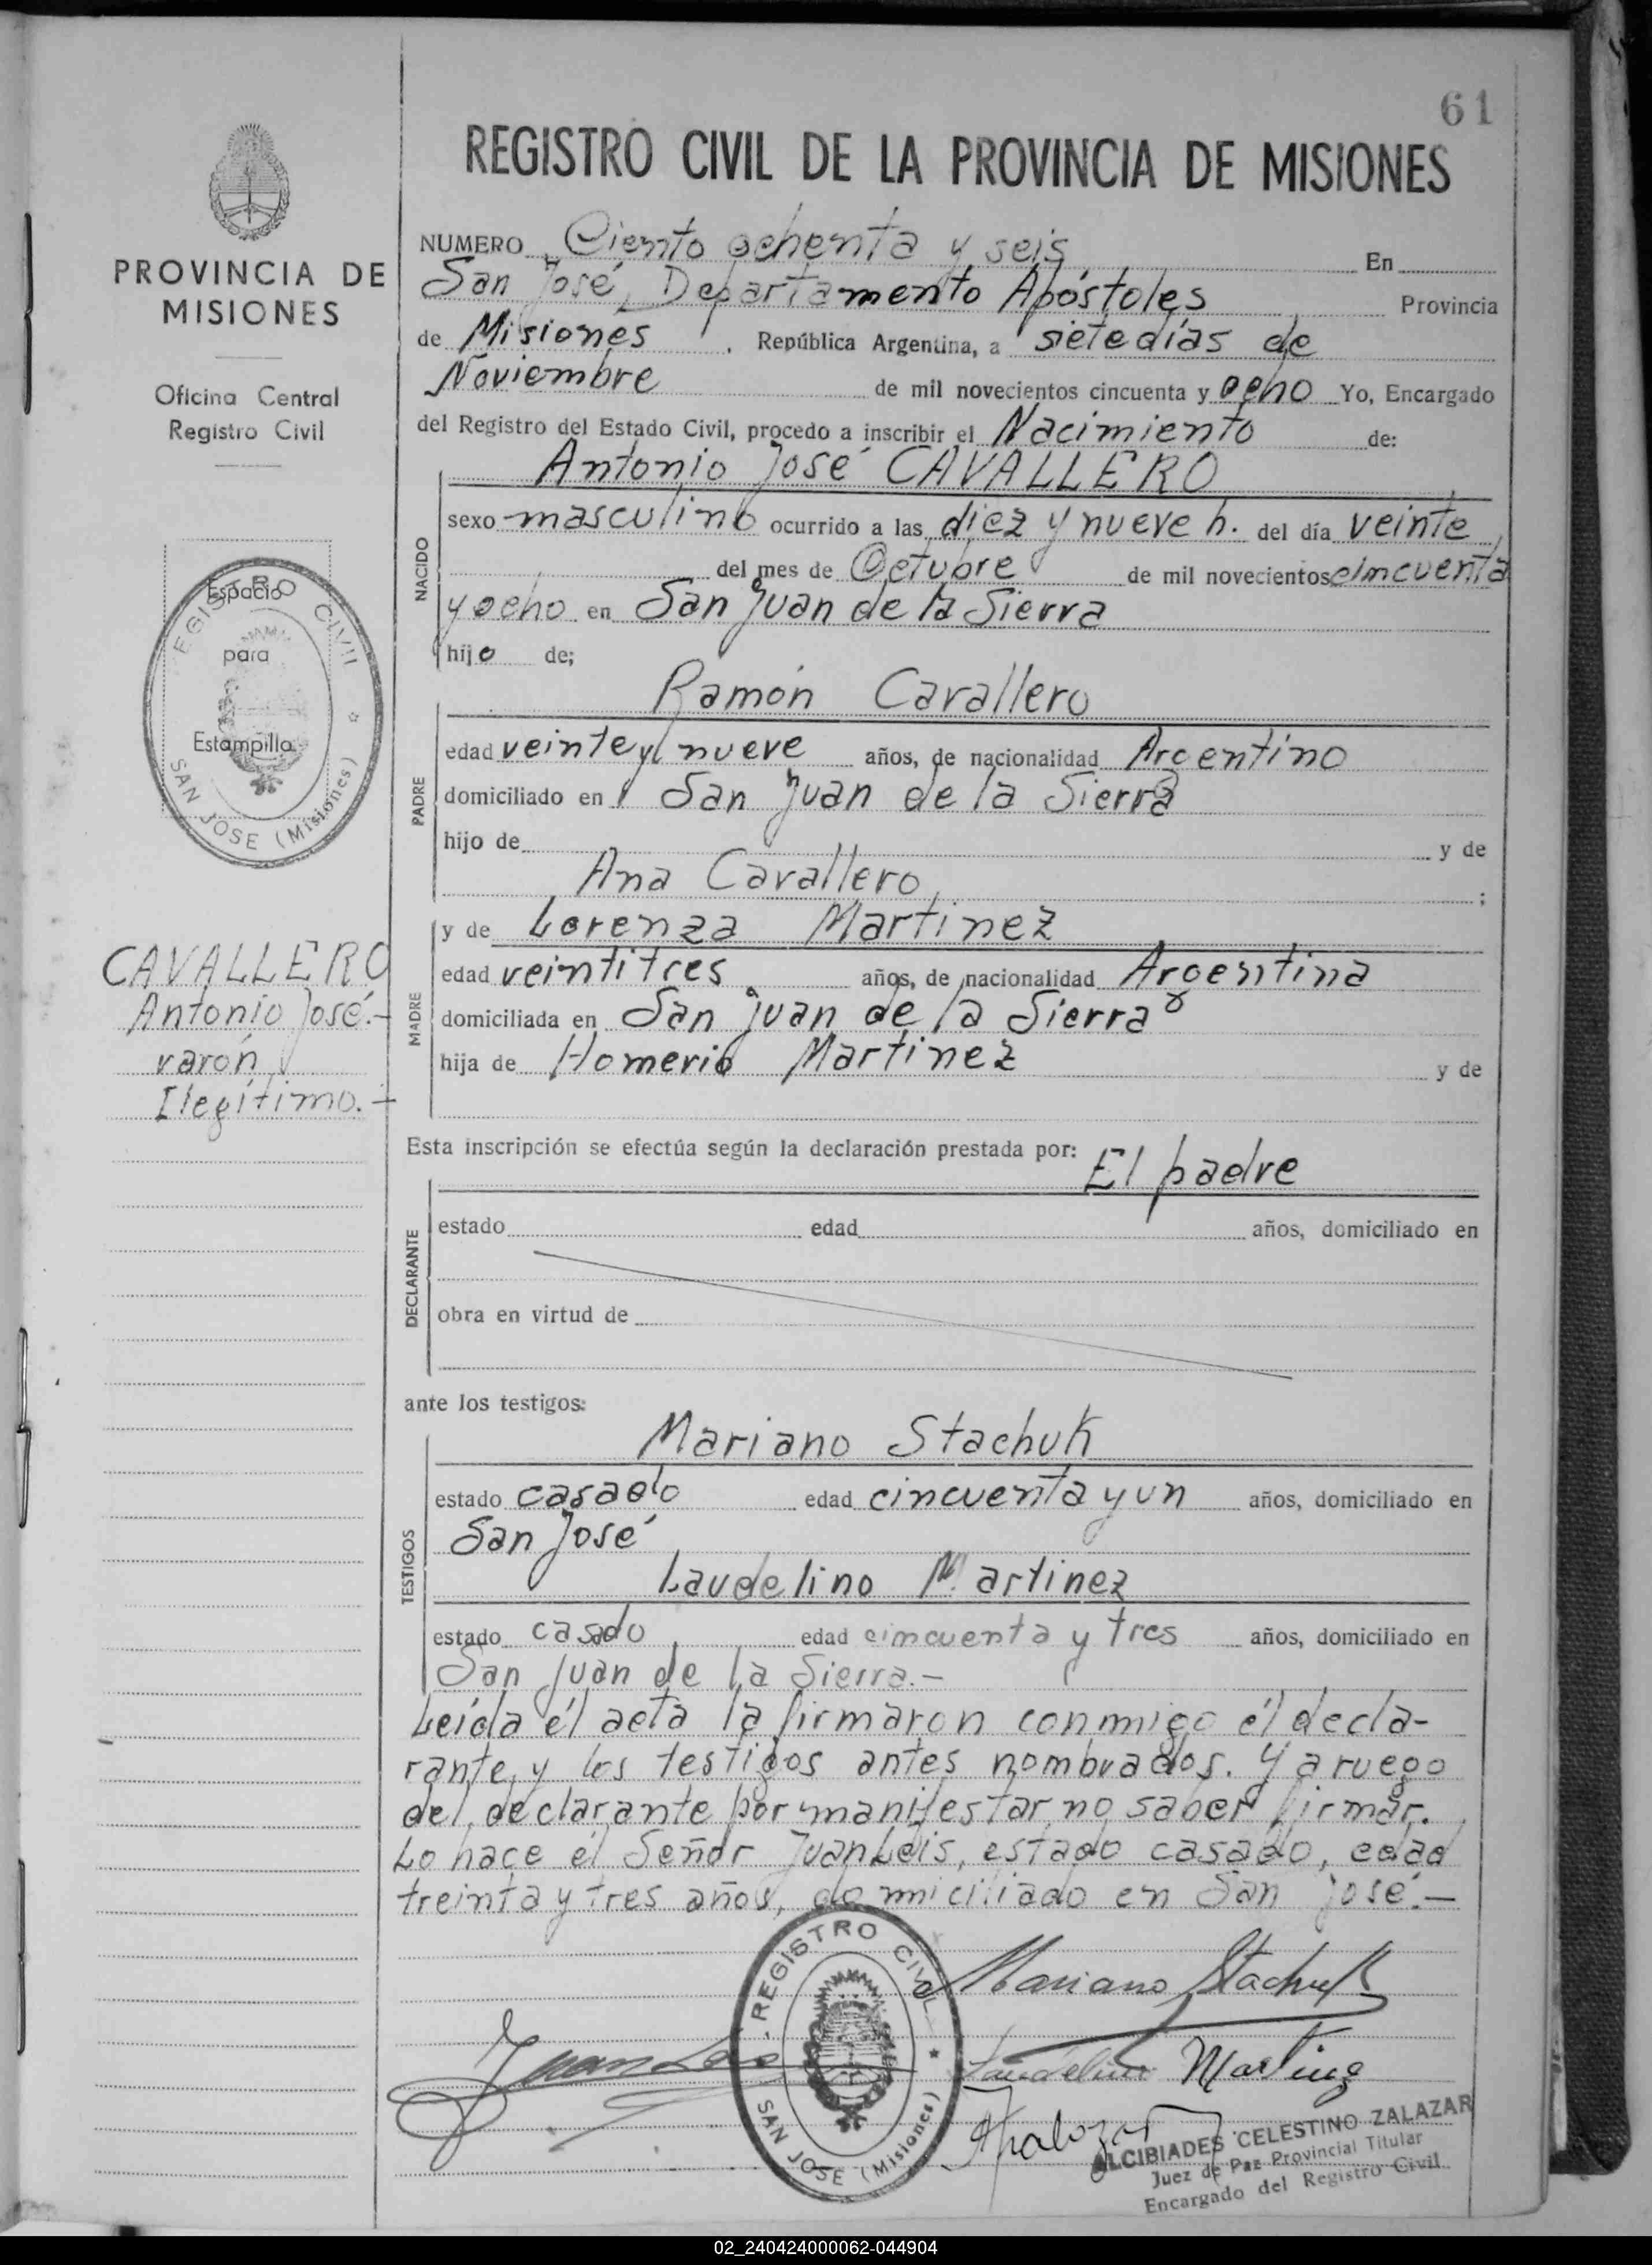 61
REGISTRO CIVIL DE LA PROVINCIA DE MISIONES
PROVINCIA DE
MISIONES
Oficina Central
Registro Civil
NUMERO Ciento ochenta y seis En
San José, Departamento Apóstoles Provincia
de Misiones, República Argentina, a siete días de
Noviembre de mil novecientos cincuenta y ocho Yo, Encargado
del Registro del Estado Civil, procedo a inscribir el Nacimiento de:
NACIDO
Antonio José CAVALLERO
sexo masculino ocurrido a las diez y nueve h. del día veinte
del mes de Octubre de mil novecientos cincuenta
y ocho en San Juan de la Sierra
hijo de;
Ramón Cavallero
PADRE
edad veinte y nueve años, de nacionalidad Argentino
domiciliado en San Juan de la Sierra
hijo de y de
Ana Cavallero ;
MADRE
y de Lorenza Martinez
edad veintitres años, de nacionalidad Argentina
domiciliada en San Juan de la Sierra
hija de Homerio Martinez y de
Espacio
para
Estampilla
REGISTRO CIVIL
SAN JOSE (Misiones)
CAVALLERO
Antonio José.-
varón
Ilegítimo.-
Esta inscripción se efectúa según la declaración prestada por: El padre
DECLARANTE
estado edad años, domiciliado en
obra en virtud de
ante los testigos:
TESTIGOS
Mariano Stachuk
estado casado edad cincuenta y un años, domiciliado en
San José
Laudelino Martinez
estado casado edad cincuenta y tres años, domiciliado en
San Juan de la Sierra.-
Leída él acta la firmaron conmigo él decla-
rante, y los testigos antes nombrados. Y a ruego
del declarante por manifestar no saber firmar.
Lo hace él Señor Juan Leis, estado casado, edad
treinta y tres años, domiciliado en San José.-
REGISTRO CIVIL
SAN JOSE (Misiones)
Mariano Stachuk
Juan Leis
Laudelino Martinez
ALCIBIADES CELESTINO ZALAZAR
Juez de Paz Provincial Titular
Encargado del Registro Civil
02_240424000062-044904